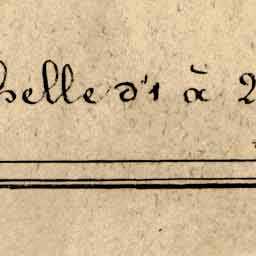 helle d'1 à 2